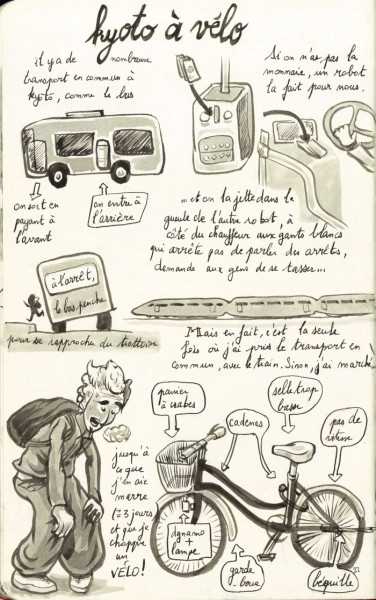 kyoto à vélo
il y a de nombreux
transport en commun à
kyoto, comme le bus
Si on n'as pas la
monnaie, un robot
la fait pour nous.
on sort en
payant à
l'avant
on entre à
l'arrière
...et on la jette dans la
gueule de l'autre robot, à
côté du chauffeur aux gants blancs
qui arrête pas de parler des arrêts,
demande aux gens de se tasser...
à l'arrêt,
le bus penche
pour se rapprocher du trottoir
Mais en fait, c'est la seule
fois où j'ai pris le transport en
commun, avec le train. Sinon, j'ai marché
jusqu'à
ce que
j'en aie
marre
(≃ 3 jours)
et que je
choppe
un
VÉLO!
panier
à crabes
cadenas
selle trop
basse
pas de
vitesse
dynamo
+
lampe
garde
boue
béquille